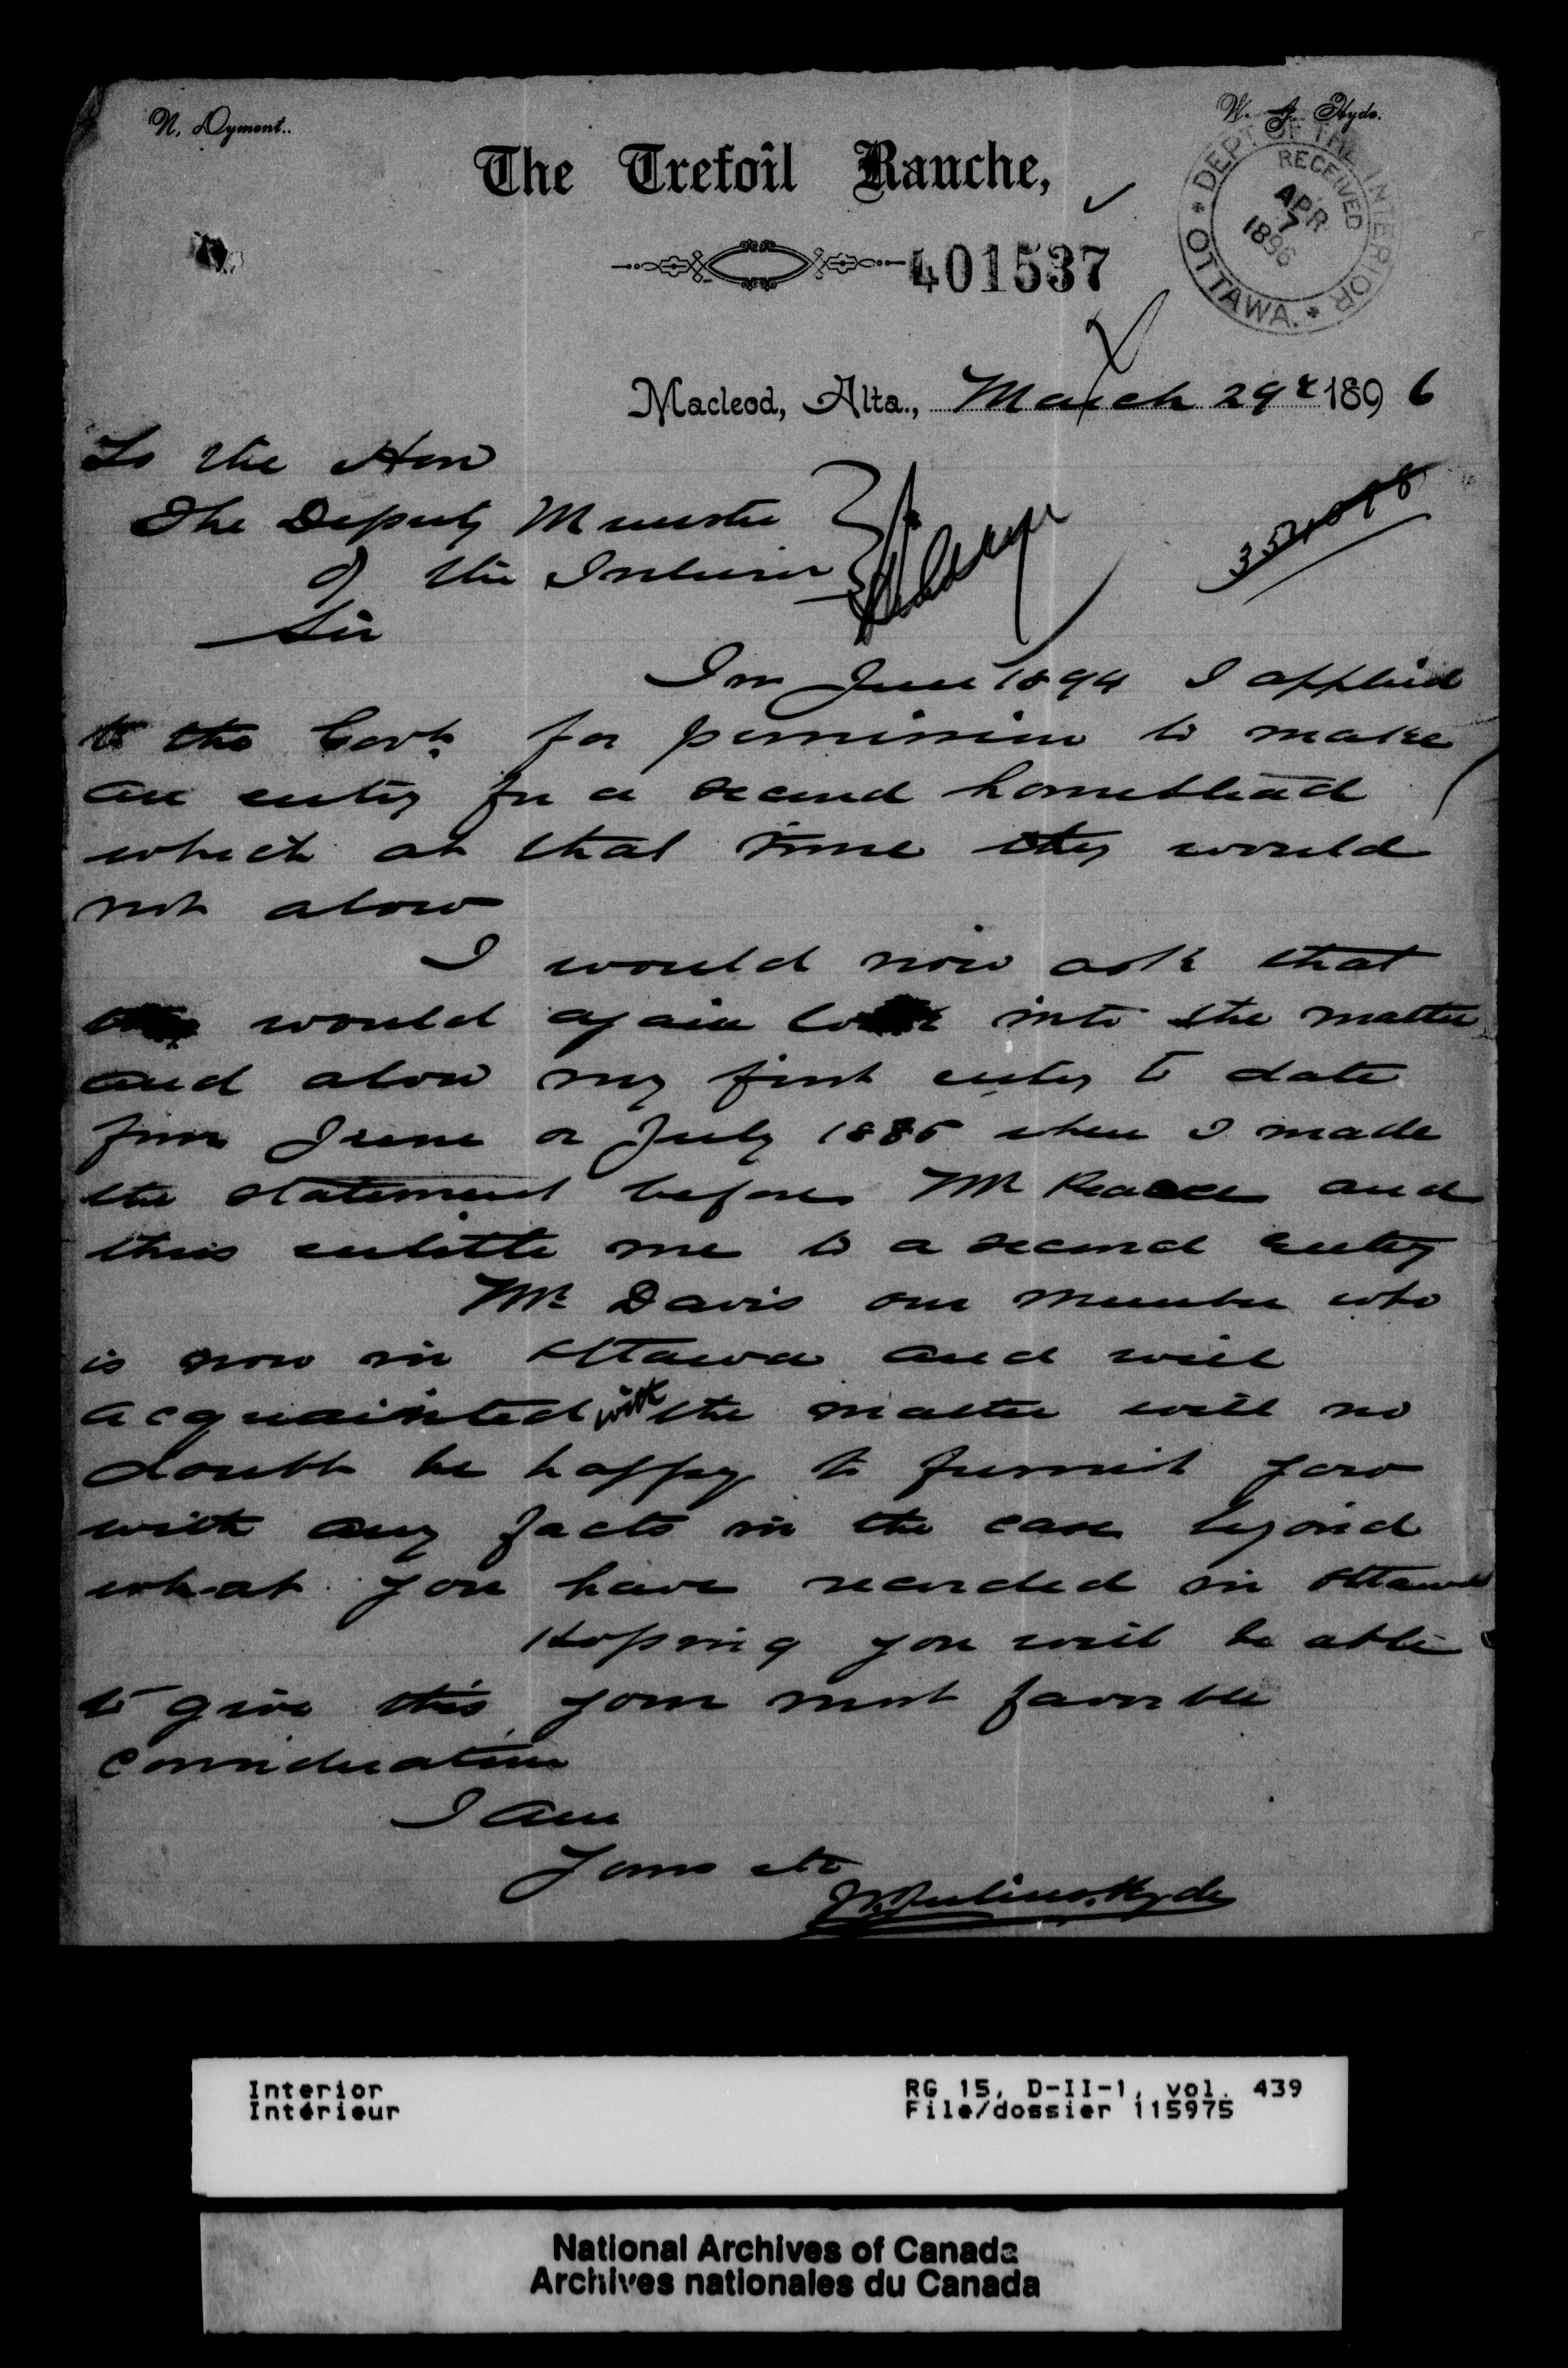 N. Dyment..
W. J. Hyde.
The Trefoil Ranche,
DEPT OF THE INTERIOR
RECEIVED
APR
7
1896
OTTAWA.
401537
Macleod, Alta., March 29th 1896
To the Hon
The Deputy Minister
of the Interior
Sir
In June 1894 I applied
to the Govt. for permission to make
an entry for a second homestead
which at that time they would
not alow
I would now ask that
would again look into the matter
and alow my first entry to date
from June or July 1885 when I made
the statement before Mr Pearce and
thus entitle me to a second entry
Mr Davis our member who
is now in Ottawa and well
acquainted with the matter will no
doubt be happy to furnish you
with any facts in the case beyond
what you have recorded in Ottawa
Hopeing you will be able
to give this your most favorble
consideration
I am
Yours etc
W. Julius Hyde
Interior
Intérieur
RG 15, D-II-1, vol. 439
File/dossier 115975
National Archives of Canada
Archives nationales du Canada